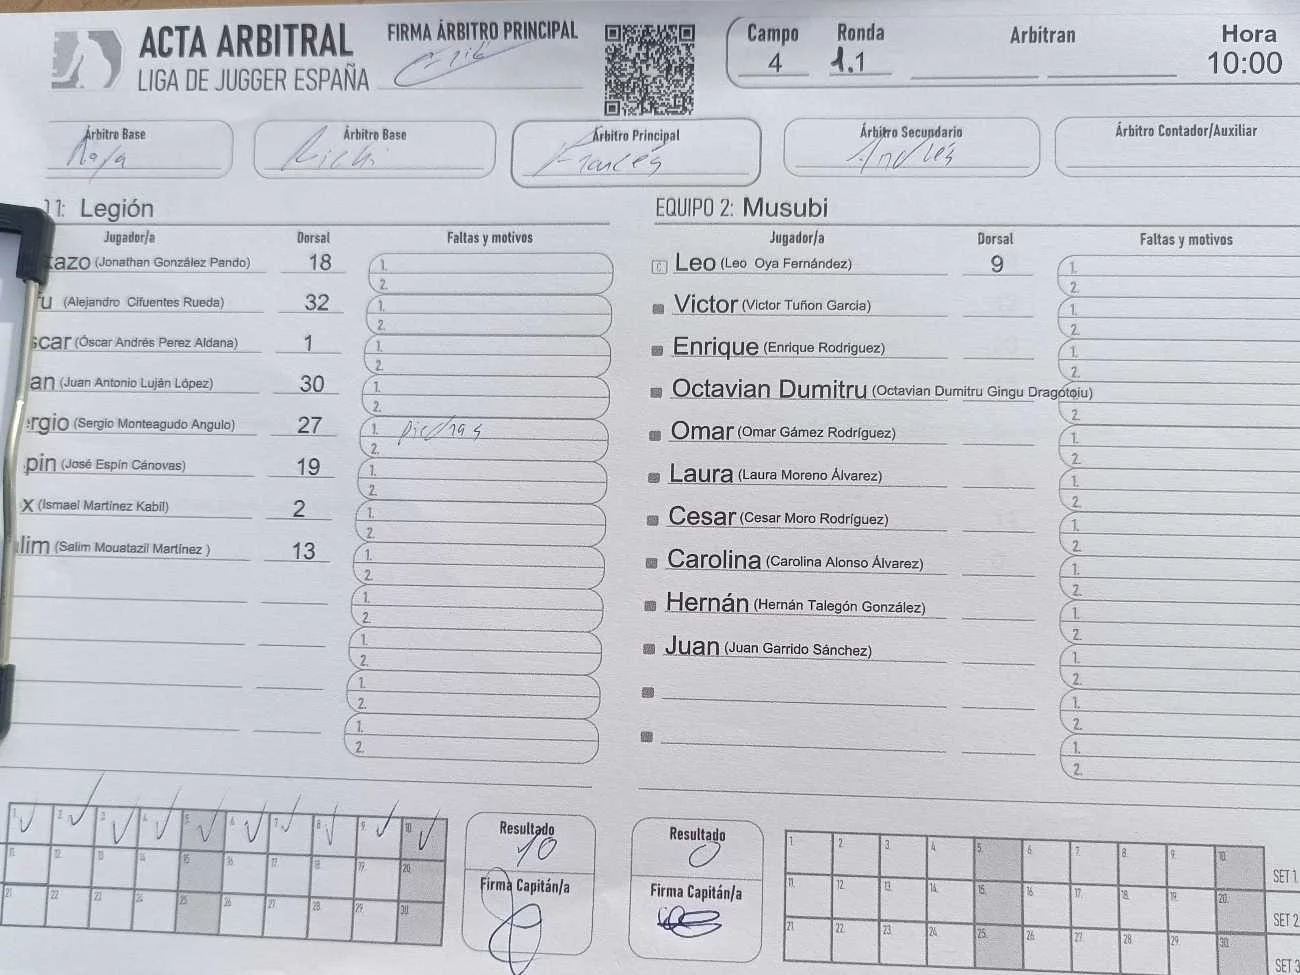 ACTA ARBITRAL
LIGA DE JUGGER ESPAÑA
FIRMA ÁRBITRO PRINCIPAL
Campo Ronda Arbitran Hora
4 1.1 10:00
Árbitro Base Árbitro Base Árbitro Principal Árbitro Secundario Árbitro Contador/Auxiliar
Rafa Richi Francés Andrés
1: Legión EQUIPO 2: Musubi
Jugador/a Dorsal Faltas y motivos Jugador/a Dorsal Faltas y motivos
(Jonathan González Pando) 18 1. 2. C Leo (Leo Oya Fernández) 9 1. 2.
(Alejandro Cifuentes Rueda) 32 1. 2. Victor (Victor Tuñon Garcia) 1. 2.
scar (Óscar Andrés Perez Aldana) 1 1. 2. Enrique (Enrique Rodriguez) 1. 2.
an (Juan Antonio Luján López) 30 1. 2. Octavian Dumitru (Octavian Dumitru Gingu Dragotoiu) 2.
rgio (Sergio Monteagudo Angulo) 27 1. piernas 2. Omar (Omar Gámez Rodríguez) 1. 2.
pin (José Espín Cánovas) 19 1. 2. Laura (Laura Moreno Álvarez) 1. 2.
x (Ismael Martínez Kabil) 2 1. 2. Cesar (Cesar Moro Rodríguez) 1. 2.
lim (Salim Mouatazil Martínez ) 13 1. 2. Carolina (Carolina Alonso Álvarez) 1. 2.
1. 2. Hernán (Hernán Talegón González) 1. 2.
1. 2. Juan (Juan Garrido Sánchez) 1. 2.
1. 2. 1. 2.
1. 2. 1. 2.
1. 2. 3. 4. 5. 6. 7. 8. 9. 10. Resultado Resultado 1. 2. 3. 4. 5. 6. 7. 8. 9. 10. SET 1
10 0
11. 12. 13. 14. 15. 16. 17. 18. 19. 20. Firma Capitán/a Firma Capitán/a 11. 12. 13. 14. 15. 16. 17. 18. 19. 20. SET 2
21. 22. 23. 24. 25. 26. 27. 28. 29. 30. 21. 22. 23. 24. 25. 26. 27. 28. 29. 30. SET 3